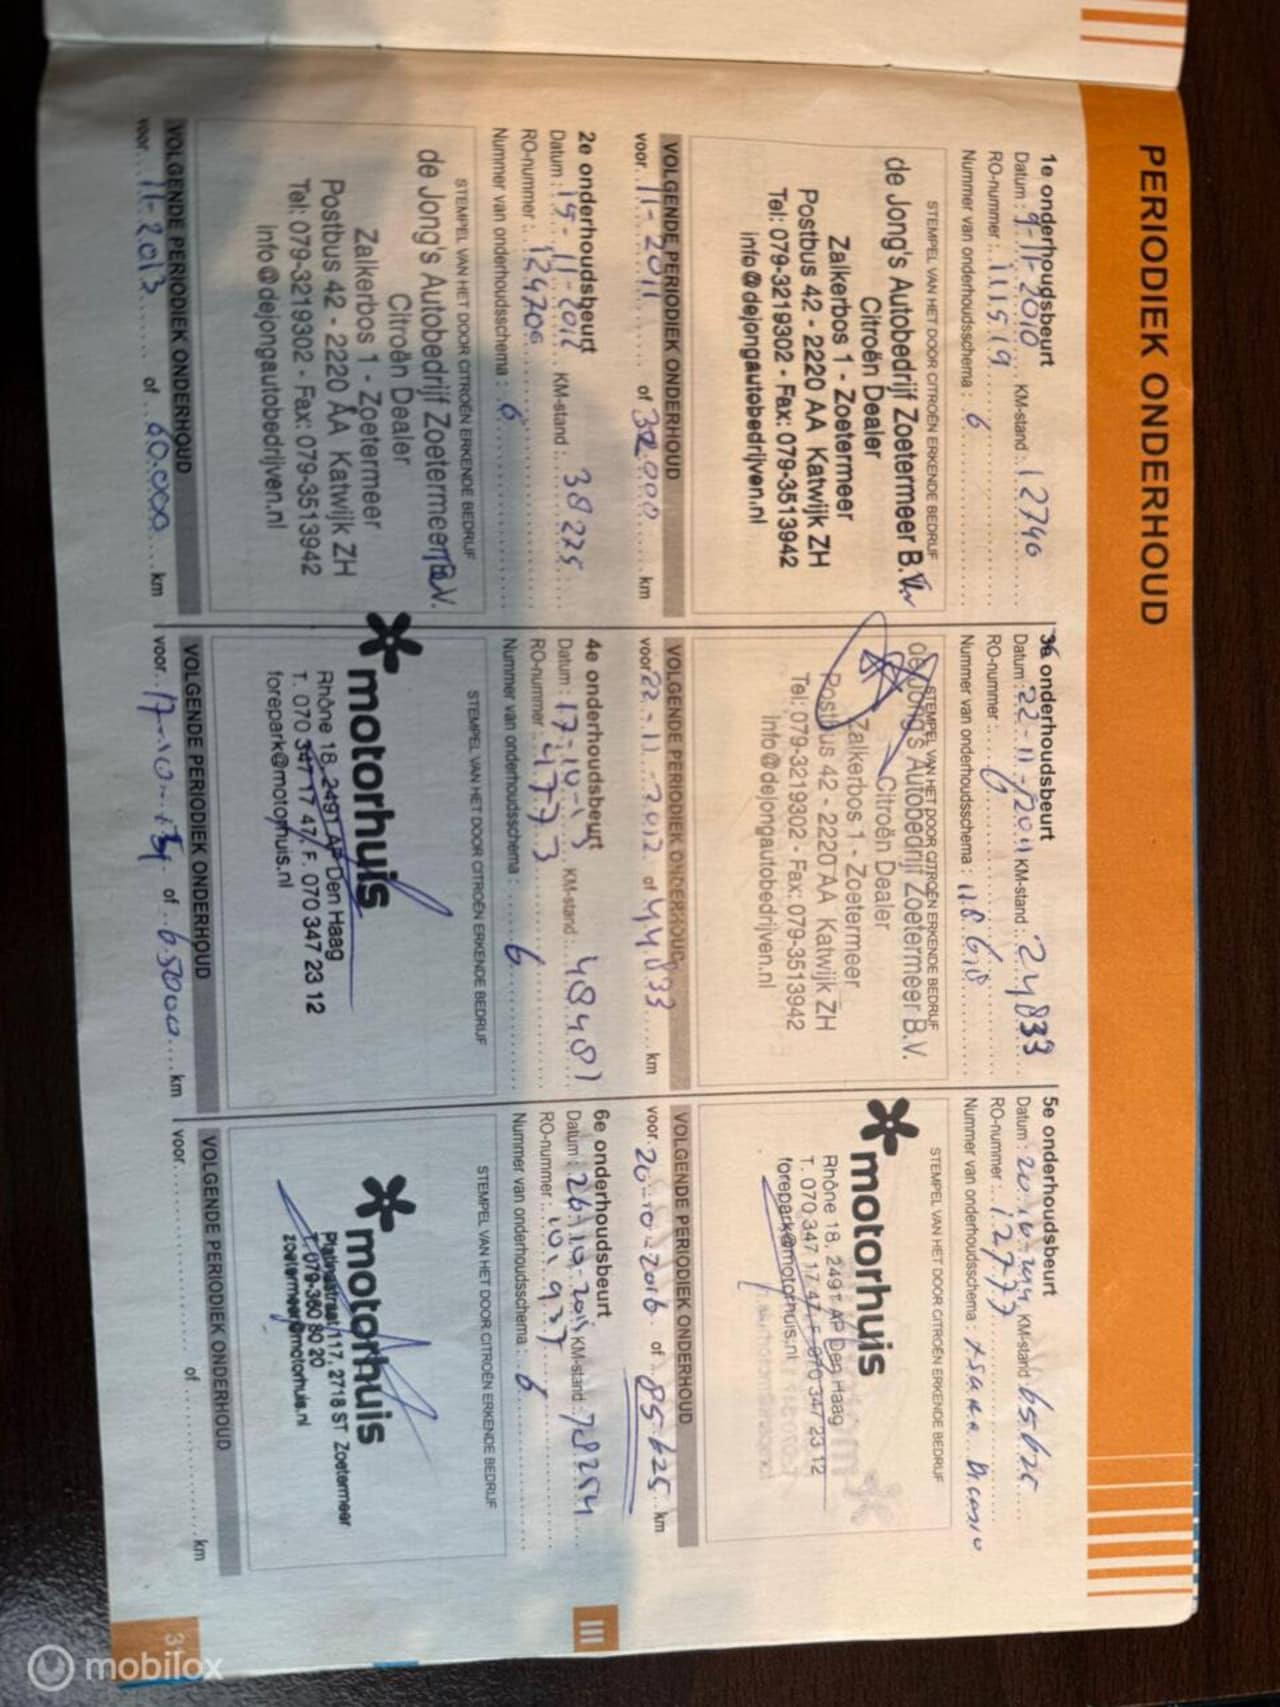 PERIODIEK ONDERHOUD
1e onderhoudsbeurt
Datum : 9-11-2010 KM-stand : 12740
RO-nummer : 111519
Nummer van onderhoudsschema : 6
STEMPEL VAN HET DOOR CITROËN ERKENDE BEDRIJF
de Jong's Autobedrijf Zoetermeer B.V.
Citroën Dealer
Zalkerbos 1 - Zoetermeer
Postbus 42 - 2220 AA Katwijk ZH
Tel: 079-3219302 - Fax: 079-3513942
info@dejongautobedrijven.nl
VOLGENDE PERIODIEK ONDERHOUD
voor 11-2011 of 32.000 km
2e onderhoudsbeurt
Datum : 15-11-2012 KM-stand : 38225
RO-nummer : 124706
Nummer van onderhoudsschema : 6
STEMPEL VAN HET DOOR CITROËN ERKENDE BEDRIJF
de Jong's Autobedrijf Zoetermeer B.V.
Citroën Dealer
Zalkerbos 1 - Zoetermeer
Postbus 42 - 2220 AA Katwijk ZH
Tel: 079-3219302 - Fax: 079-3513942
info@dejongautobedrijven.nl
VOLGENDE PERIODIEK ONDERHOUD
voor 11-2013 of 60.000 km
3e onderhoudsbeurt
Datum : 22-11-2011 KM-stand : 24833
RO-nummer : 6
Nummer van onderhoudsschema : 118618
STEMPEL VAN HET DOOR CITROËN ERKENDE BEDRIJF
de Jong's Autobedrijf Zoetermeer B.V.
Citroën Dealer
Zalkerbos 1 - Zoetermeer
Postbus 42 - 2220 AA Katwijk ZH
Tel: 079-3219302 - Fax: 079-3513942
info@dejongautobedrijven.nl
VOLGENDE PERIODIEK ONDERHOUD
voor 22-11-2012 of 44.833 km
4e onderhoudsbeurt
Datum : 17-10-13 KM-stand : 48481
RO-nummer : 4773
Nummer van onderhoudsschema : 6
STEMPEL VAN HET DOOR CITROËN ERKENDE BEDRIJF
motorhuis
Rhône 18, 2491 AP Den Haag
T. 070 347 17 47, F. 070 347 23 12
forepark@motorhuis.nl
VOLGENDE PERIODIEK ONDERHOUD
voor 17-10- of 65000 km
5e onderhoudsbeurt
Datum : KM-stand 65.625
RO-nummer : 12777
Nummer van onderhoudsschema : XSARA Picasso
STEMPEL VAN HET DOOR CITROËN ERKENDE BEDRIJF
motorhuis
Rhône 18, 2491 AP Den Haag
T. 070 347 17 47, F. 070 347 23 12
forepark@motorhuis.nl
VOLGENDE PERIODIEK ONDERHOUD
voor 20-10-2016 of 85-625 km
6e onderhoudsbeurt
Datum : 26-10-2015 KM-stand : 78254
RO-nummer : 101937
Nummer van onderhoudsschema : 6
STEMPEL VAN HET DOOR CITROËN ERKENDE BEDRIJF
motorhuis
Platinastraat 117, 2718 ST Zoetermeer
T. 079-360 80 20
zoetermeer@motorhuis.nl
VOLGENDE PERIODIEK ONDERHOUD
voor of km
III
mobilox